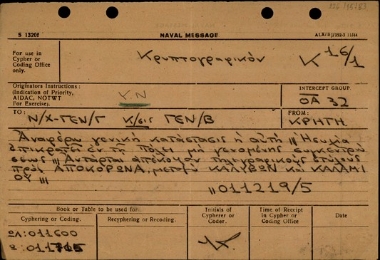 S 1320f
NAVAL MESSAGE
For use in
Cypher or
Coding Office
only
Κρυπτογραφικόν
Κ 16/1
Originators Instructions:
(Indication of Priority,
AIDAC, NOTWT
For Exercise).
ΚΝ
INTERCEPT GROUP.
ΟΑ 32
TO:
Ν/Χ-ΓΕΝ/Γ Κ/σις ΓΕΝ/Β
FROM:
ΚΡΗΤΗ
Αναφέρω γενική κατάστασις ἡ αὐτή // Ἡσυχία
ἐπικρατεῖ ἐν τῇ πόλει μή γενομένης συγκεντρώ
σεως // Αντάρται ἀπέκοψαν τηλεγραφικούς στύλους
πρός ΑΠΟΚΟΡΩΝΑ, μεταξύ ΚΑΛΥΒΩΝ καί
ΟΥ ///
011219/5
Book or Table to be used:
Cyphering or Coding.
Recyphering or Recoding.
Initials of
Cypherer or
Coder.
Time of Receipt
in Cypher or
Coding Office
Date
ΩΛ: 011600